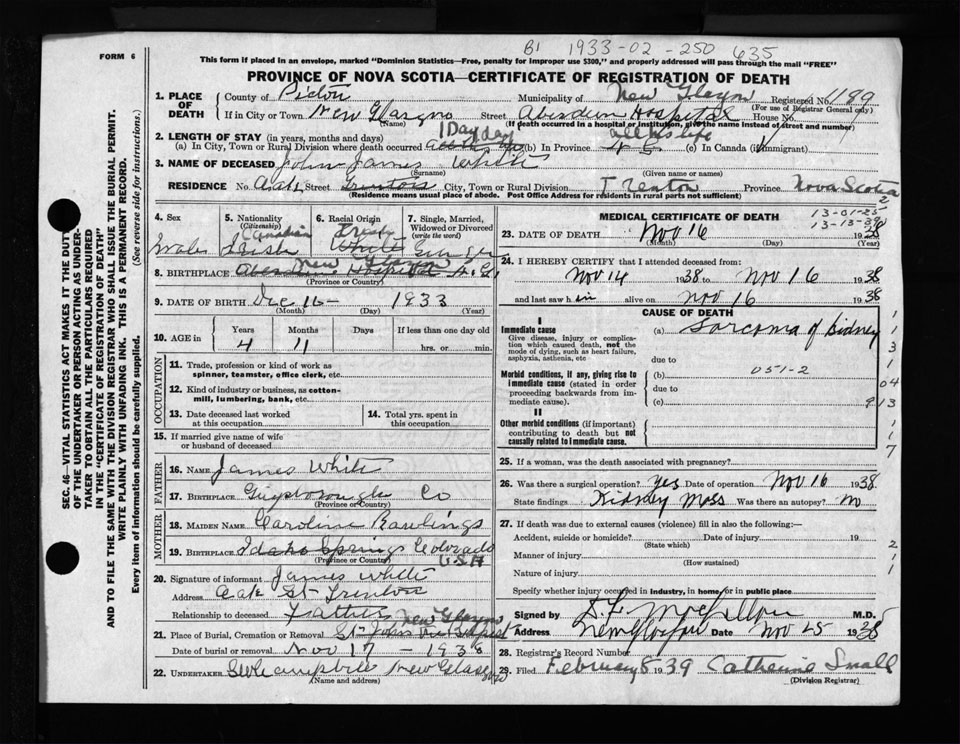 FORM 6
B1 1933-02-250 635
This form if placed in an envelope, marked "Dominion Statistics—Free, penalty for improper use $300," and properly addressed will pass through the mail "FREE"
PROVINCE OF NOVA SCOTIA—CERTIFICATE OF REGISTRATION OF DEATH
1. PLACE OF DEATH
County of Pictou Municipality of New Glasgow Registered No. 1199
(For use of Registrar General only)
If in City or Town New Glasgow Street Aberdeen Hospital House No.
(Name) (If death occurred in a hospital or institution, give the name instead of street and number)
2. LENGTH OF STAY (in years, months and days) 1 Day day all his life
(a) In City, Town or Rural Division where death occurred (b) In Province (c) In Canada (if immigrant)
3. NAME OF DECEASED John James White
(Surname) (Given name or names)
RESIDENCE No. Street City, Town or Rural Division Trenton Province Nova Scotia
(Residence means usual place of abode. Post Office Address for residents in rural parts not sufficient)
4. Sex Male
5. Nationality (Citizenship) Canadian Irish
6. Racial Origin Irish White
7. Single, Married, Widowed or Divorced (write the word) Single
8. BIRTHPLACE New Glasgow Aberdeen Hospital N.S.
(Province or Country)
9. DATE OF BIRTH Dec 16 - 1933
(Month) (Day) (Year)
10. AGE in Years Months Days If less than one day old
4 11 hrs. or min.
OCCUPATION
11. Trade, profession or kind of work as spinner, teamster, office clerk, etc.
12. Kind of industry or business, as cotton-mill, lumbering, bank, etc.
13. Date deceased last worked at this occupation
14. Total yrs. spent in this occupation
15. If married give name of wife or husband of deceased
FATHER
16. NAME James White
17. BIRTHPLACE Guysborough Co
MOTHER
18. MAIDEN NAME Caroline Rawlings
19. BIRTHPLACE Idaho Springs Colorado
(Province or Country) U.S.A
20. Signature of informant James White
Address Oak St Trenton
Relationship to deceased Father
New Glasgow
21. Place of Burial, Cremation or Removal St John the Baptist
Date of burial or removal Nov 17 - 1938
22. UNDERTAKER New Glasgow
(Name and address)
MEDICAL CERTIFICATE OF DEATH
13-01-25
13-13-39
23. DATE OF DEATH Nov 16 1938
(Month) (Day) (Year)
24. I HEREBY CERTIFY that I attended deceased from:
Nov 14 1938 to Nov 16 1938
and last saw him alive on Nov 16 1938
CAUSE OF DEATH
I
Immediate cause (a) Sarcoma of Kidney
Give disease, injury or complication which caused death, not the mode of dying, such as heart failure, asphyxia, asthenia, etc
due to
Morbid conditions, if any, giving rise to immediate cause (stated in order proceeding backwards from immediate cause). (b) 051-2
due to
(c)
II
Other morbid conditions (if important) contributing to death but not causally related to immediate cause.
25. If a woman, was the death associated with pregnancy?
26. Was there a surgical operation? Yes Date of operation Nov 16 1938
State findings Kidney Mass Was there an autopsy? no
27. If death was due to external causes (violence) fill in also the following:—
Accident, suicide or homicide? Date of injury 19
(State which)
Manner of injury
(How sustained)
Nature of injury
Specify whether injury occurred in industry, in home, or in public place
Signed by M.D.
Address New Glasgow Date Nov 25 1938
28. Registrar's Record Number
29. Filed February 8 1939 Catherine Small
(Division Registrar)
SEC. 46—VITAL STATISTICS ACT MAKES IT THE DUTY
OF THE UNDERTAKER OR PERSON ACTING AS UNDER-
TAKER TO OBTAIN ALL THE PARTICULARS REQUIRED
IN THE "CERTIFICATE OF REGISTRATION OF DEATH"
AND TO FILE THE SAME WITH THE DIVISION REGISTRAR WHO SHALL ISSUE THE BURIAL PERMIT.
WRITE PLAINLY WITH UNFADING INK. THIS IS A PERMANENT RECORD.
Every item of information should be carefully supplied. (See reverse side for instructions.)